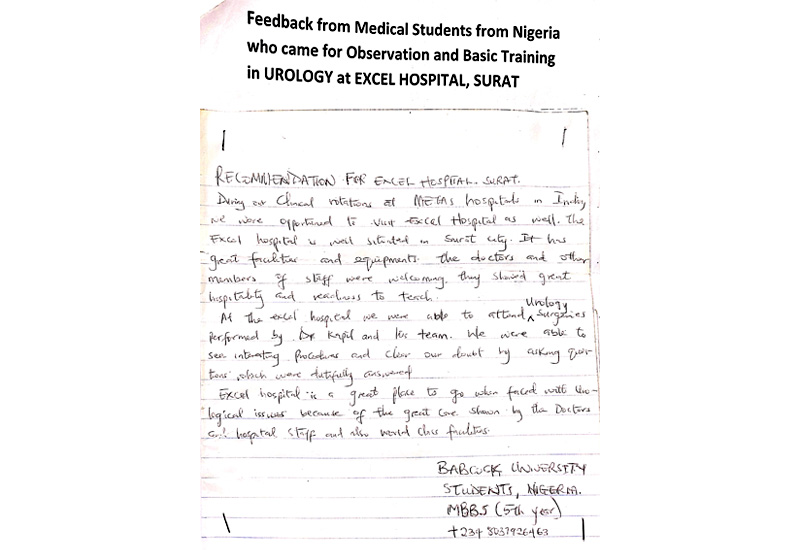 Feedback from Medical Students from Nigeria
who came for Observation and Basic Training
in UROLOGY at EXCEL HOSPITAL, SURAT
RECOMMENDATION FOR EXCEL HOSPITAL. SURAT.
During our Clinical rotations at METAS hospitals in India,
we were opportuned to visit Excel Hospital as well. The
Excel hospital is well situated in Surat city. It has
great facilities and equipments. The doctors and other
members of staff were welcoming, they showed great
hospitality and readiness to teach.
At the excel hospital we were able to attend Urology Surgeries
performed by Dr Kapil and his team. We were able to
see interesting procedures and clear our doubt by asking ques-
tions which were dutifully answered
Excel hospital is a great place to go when faced with Uro-
logical issues because of the great care shown by the Doctors
and hospital staff and also world class facilities.
BABCOCK UNIVERSITY
STUDENTS, NIGERIA.
MBBS (5th year)
+234 8037926463